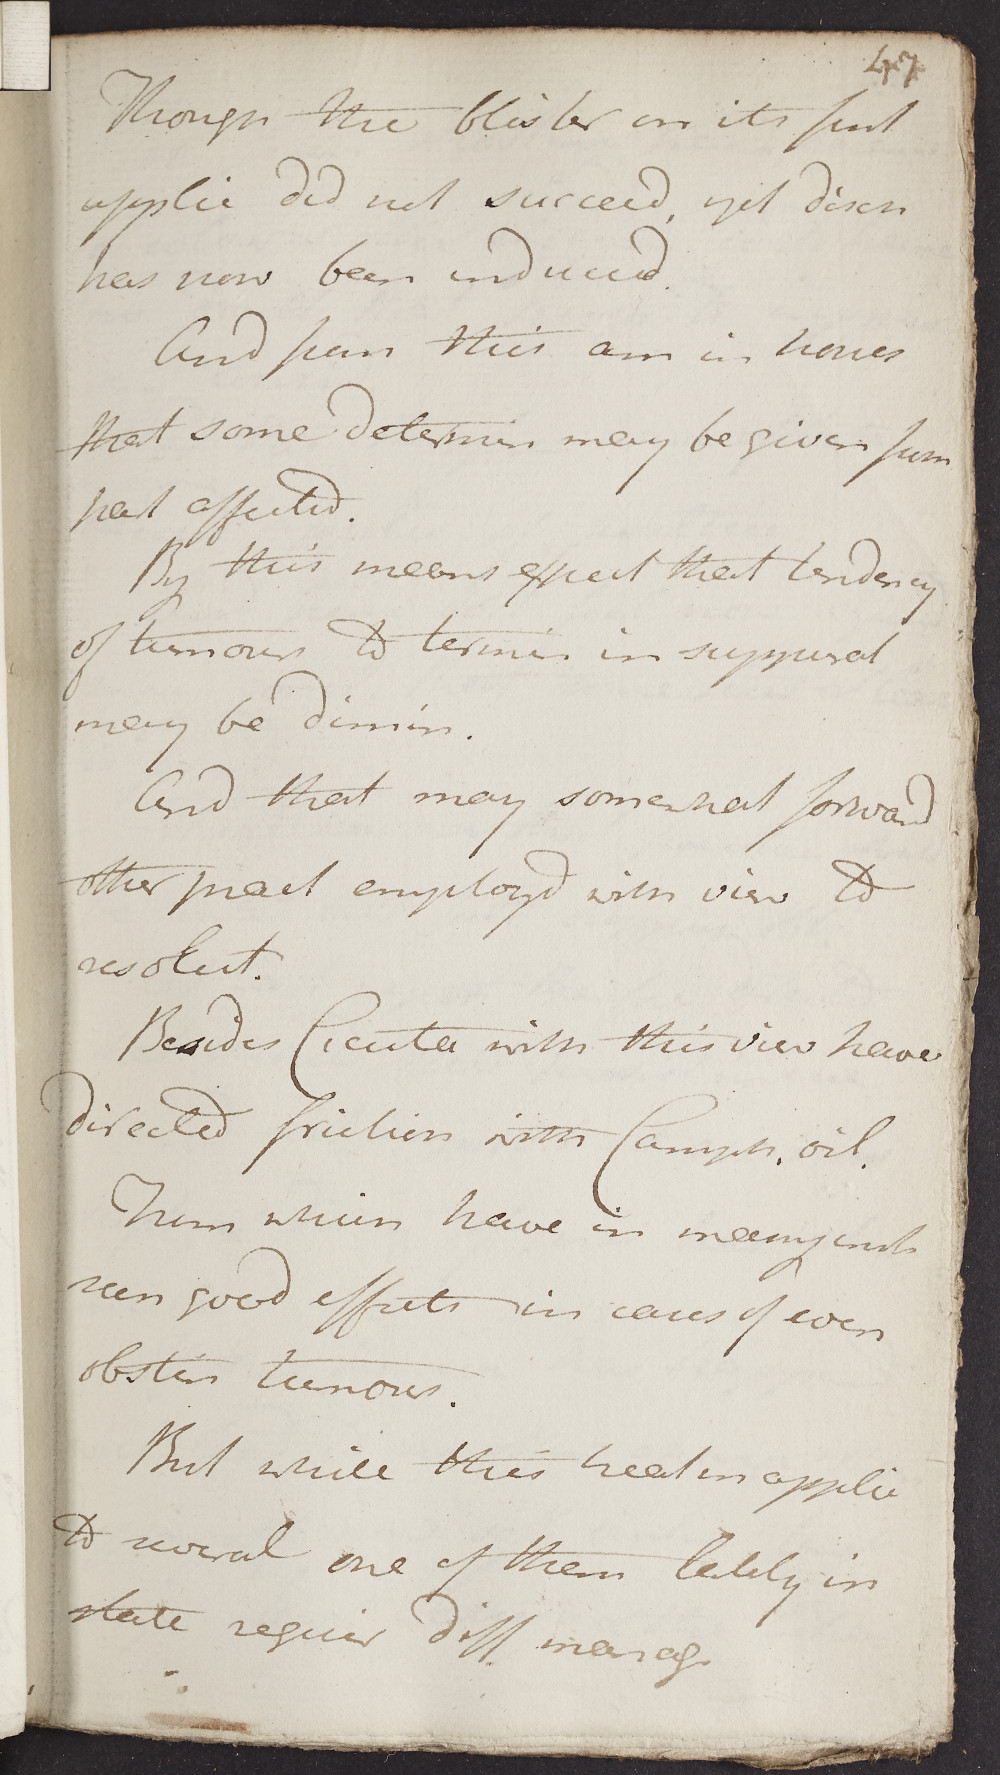 47
Though the blister on its first
applic did not succeed, yet disch
has now been induced.
And from this am in hopes
that some determin may be given from
part affected.
By this means expect that tendency
of tumours to termin in suppurat
may be dimin.
And that may somewhat forward
other pract employd with view to
resolut.
Besides Cicuta with this view have
directed friction with Camph. oil.
From which have in many inst
seen good effects in cases of even
obstin tumours.
But while this treatm applic
to several one of them lately in
state requir diff. manag